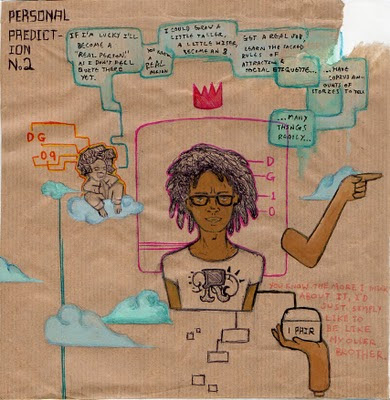 PERSONAL
PREDICT-
ION
N.2
IF I'M LUCKY I'LL
BECOME A
"REAL PERSON."
AS I DON'T FEEL
QUITE THERE
YET.
YOU KNOW
A
REAL
PERSON
I COULD GROW A
LITTLE TALLER,
A LITTLE WISER,
BECOME AN 8
GET A REAL JOB,
LEARN THE SACRED
RULES OF
ATTRACTION &
SOCIAL ETIQUETTE...
...HAVE
COPIOUS AM-
OUNTS OF
STORIES TO TELL
...MANY
THINGS
REALLY...
DG
-09
D
G
1
0
YOU KNOW THE MORE I THINK
ABOUT IT, I'D
JUST SIMPLY
LIKE TO
BE LIKE
MY OLDER
BROTHER.